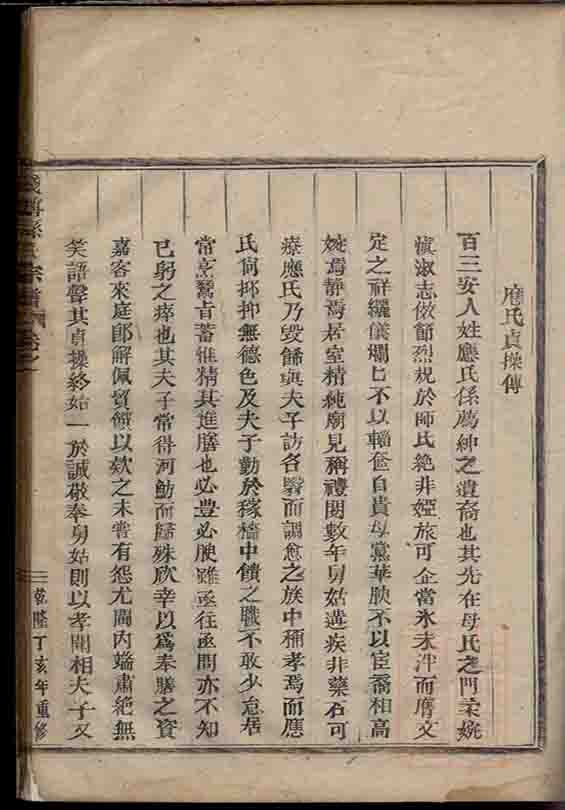 應氏貞操傳
百三安人姓應氏係薦紳之遺裔也其先在母氏之門柔婉
慎淑志倣節烈規於師氏絕非婭旅可企當氷未泮而膺文
定之祥纚儀爛以不以輜奩自貴母黨華腴不以宦裔相高
婉焉靜焉居室精純廟見稱禮閱數年舅姑遘疾非藥石可
療應氏乃毀餙與夫子訪名醫而調愈之族中稱孝焉而應
氏伺抑抑無德色及夫子勤於稼穡中饋之職不敢少怠居
常烹鬻旨蓄惟精其進膳也必豊必腴雖亟往亟問亦不知
已躬之瘁也其夫子常得河魴而歸殊欣幸以為奉膳之資
嘉客來庭卽解佩質饌以欵之未嘗有怨尤閫内端肅絕無
笑語聲其貞操終始一於誠敬奉舅姑則以孝聞相夫子又
宗譜
乾隆丁亥年重修